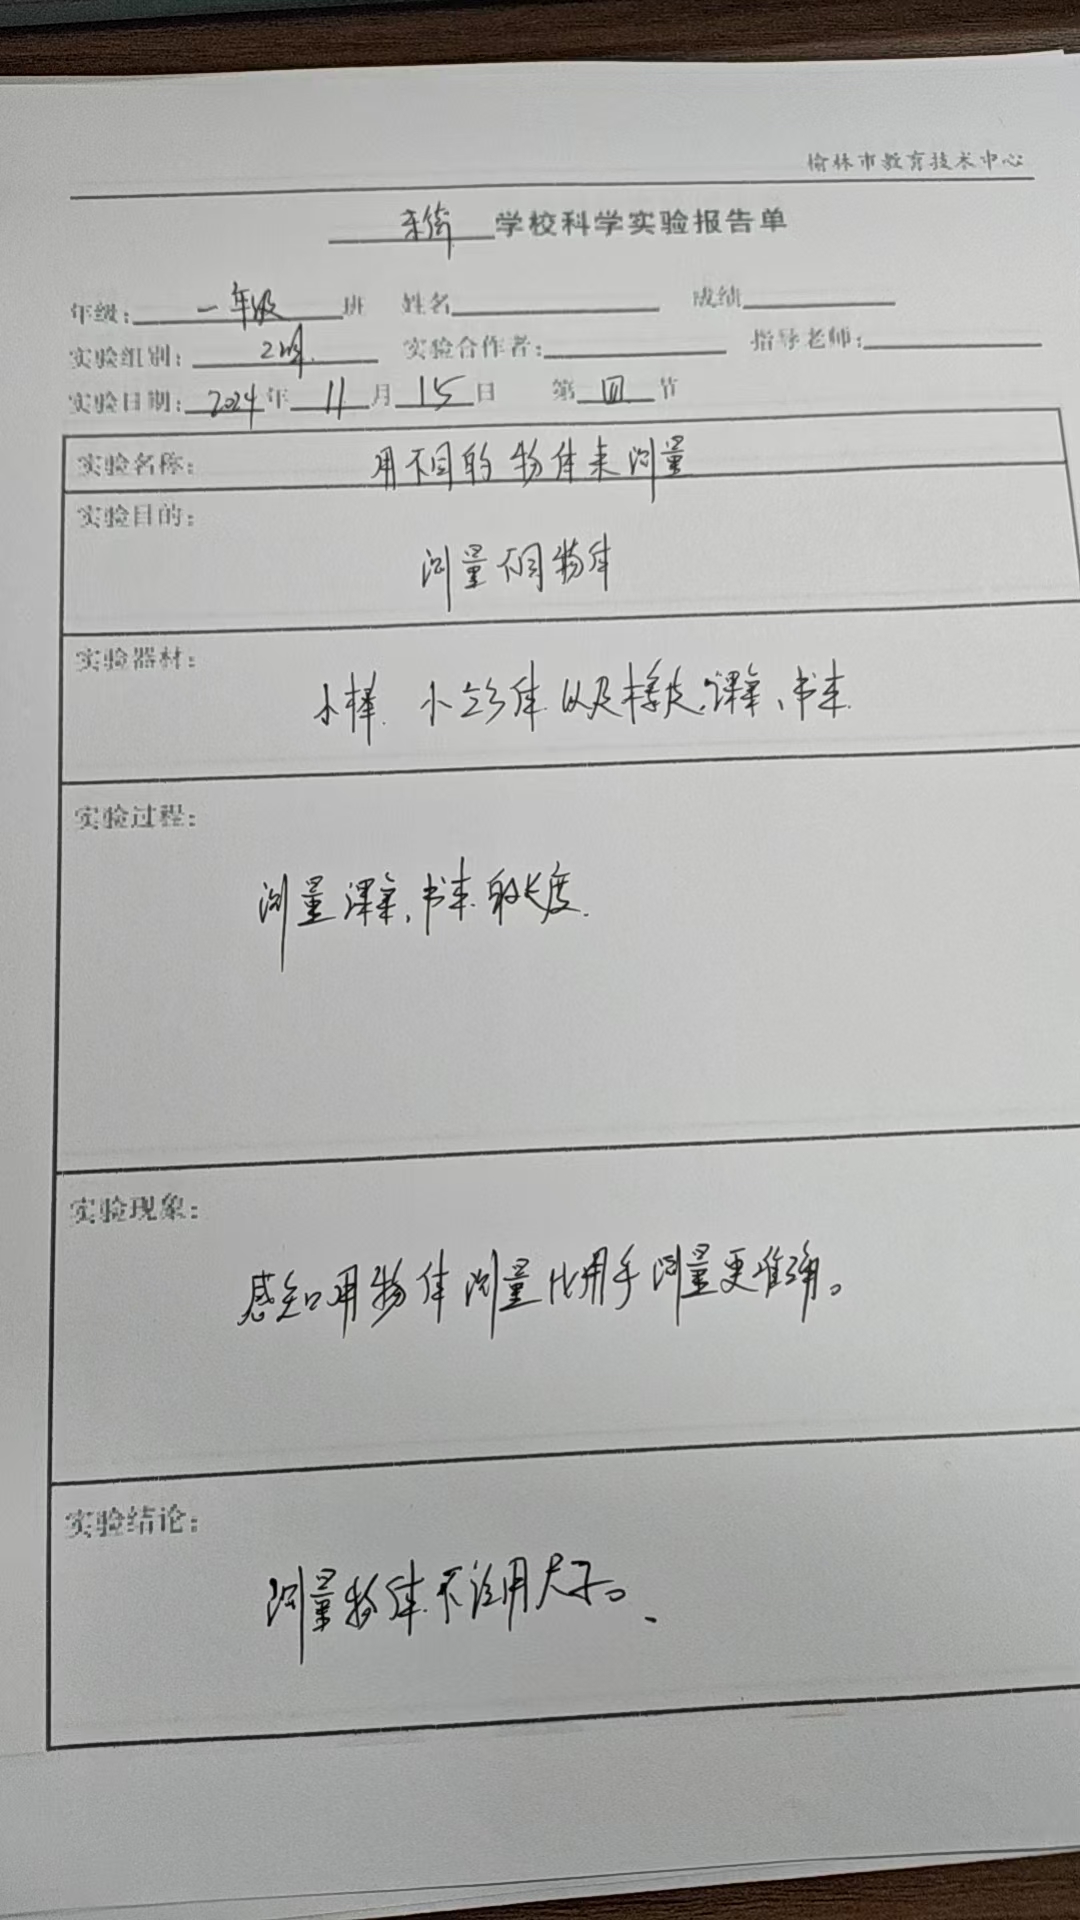 榆林市教育技术中心
东街 学校科学实验报告单
年级：一年级 班 姓名 成绩
实验组别：2班. 实验合作者： 指导老师：
实验日期：2024年 11 月 15 日 第 四 节
实验名称： 用不同的物体来测量
实验目的：
测量不同物体
实验器材：
小棒、小立方体以及橡皮、课桌、书本.
实验过程：
测量课桌、书本的长度.
实验现象：
感知用物体测量比用手测量更准确。
实验结论：
测量物体